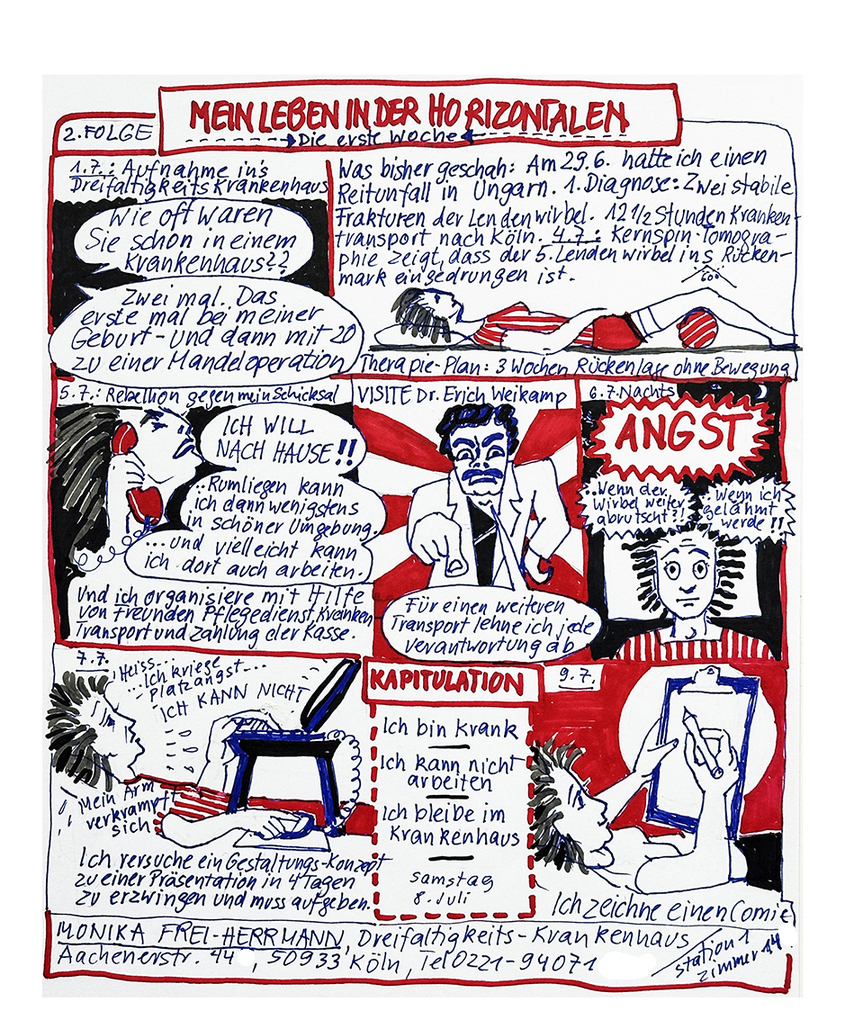 MEIN LEBEN IN DER HORIZONTALEN
2. FOLGE
Die erste Woche
1.7.: Aufnahme in's
Dreifaltigkeits Krankenhaus
Wie oft waren
Sie schon in einem
Krankenhaus??
Zwei mal. Das
erste mal bei meiner
Geburt - und dann mit 20
zu einer Mandeloperation
Was bisher geschah: Am 29.6. hatte ich einen
Reitunfall in Ungarn. 1. Diagnose: Zwei stabile
Frakturen der Lendenwirbel. 12 1/2 Stunden Kranken-
transport nach Köln. 4.7.: Kernspin-Tomogra-
phie zeigt, dass der 5. Lendenwirbel ins Rücken-
mark eingedrungen ist.
60°
Therapie-Plan: 3 Wochen Rückenlage ohne Bewegung
5.7.: Rebellion gegen mein Schicksal
ICH WILL
NACH HAUSE!!
..Rumliegen kann
ich dann wenigstens
in schöner Umgebung.
...und vielleicht kann
ich dort auch arbeiten.
Und ich organisiere mit Hilfe
von Freunden Pflegedienst, Kranken-
Transport und Zahlung der Kasse.
VISITE Dr. Erich Weikamp
Für einen weiteren
Transport lehne ich jede
Verantwortung ab
6.7. Nachts
ANGST
..Wenn der
Wirbel weiter
abrutscht?!
Wenn ich
gelähmt
werde!!
7.7.
Heiss...
...Ich kriege
Platzangst...
ICH KANN NICHT
Mein Arm
verkrampft
sich
Ich versuche ein Gestaltungs-Konzept
zu einer Präsentation in 4 Tagen
zu erzwingen und muss aufgeben.
KAPITULATION
Ich bin Krank
Ich kann nicht
arbeiten
Ich bleibe im
Krankenhaus
Samstag
8. Juli
9.7.
Ich zeichne einen Comic
MONIKA FREI-HERRMANN, Dreifaltigkeits-Krankenhaus
Aachenerstr. 44, 50933 Köln, Tel 0221-94071
Station 1
Zimmer 14